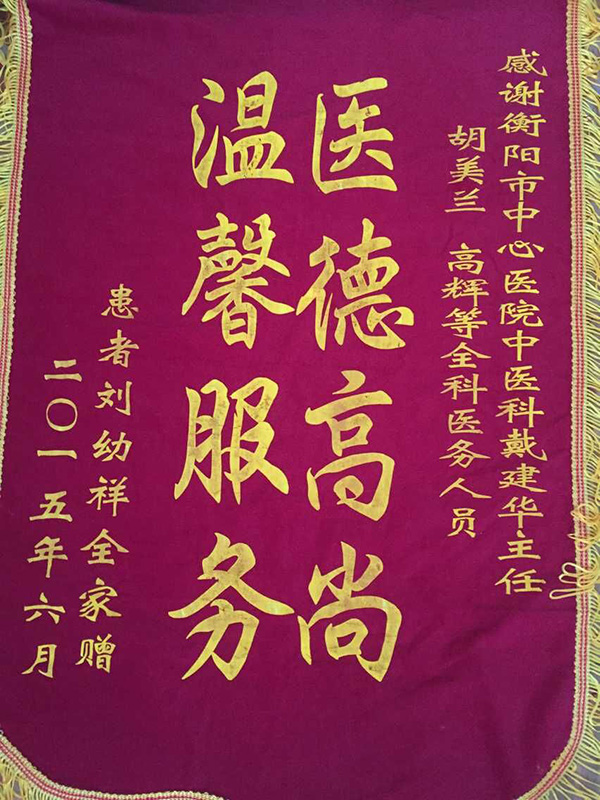 感谢衡阳市中心医院中医科戴建华主任
胡美兰 高辉等全科医务人员
医德高尚
温馨服务
患者刘幼祥全家赠
二〇一五年六月